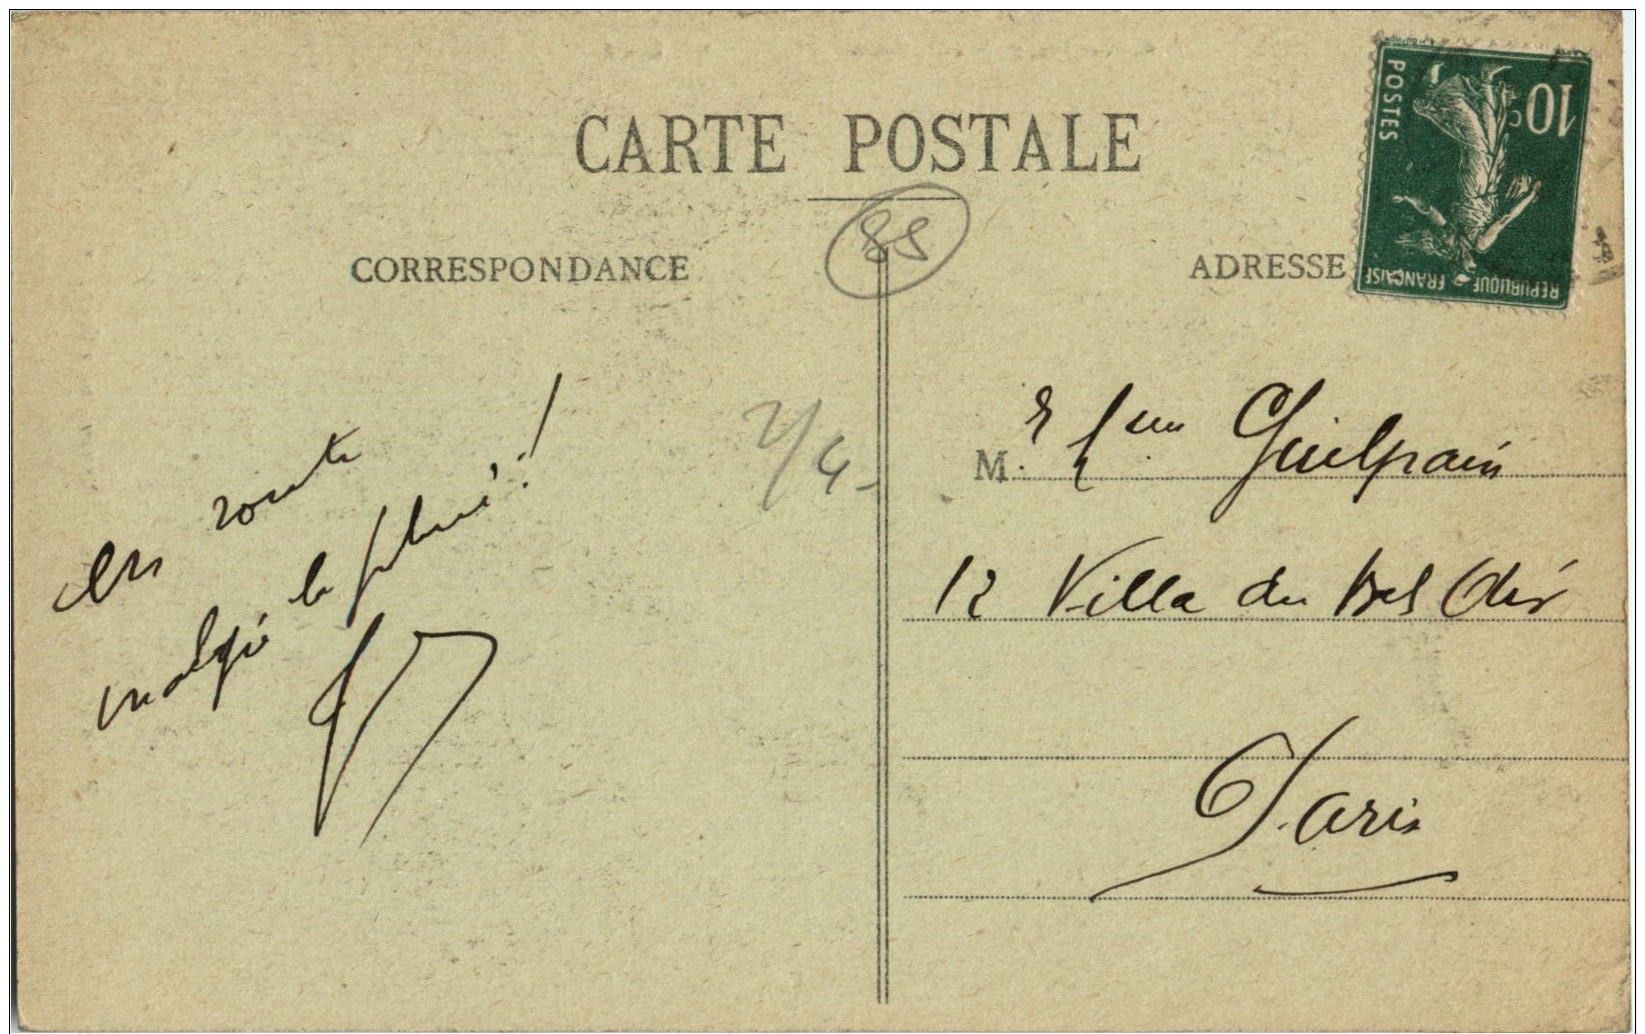 CARTE POSTALE
CORRESPONDANCE
ADRESSE
10c
POSTES
REPUBLIQUE FRANÇAISE
85
en route
malgré la pluie !
M. Guilpain
12 Villa du Bel Air
Paris